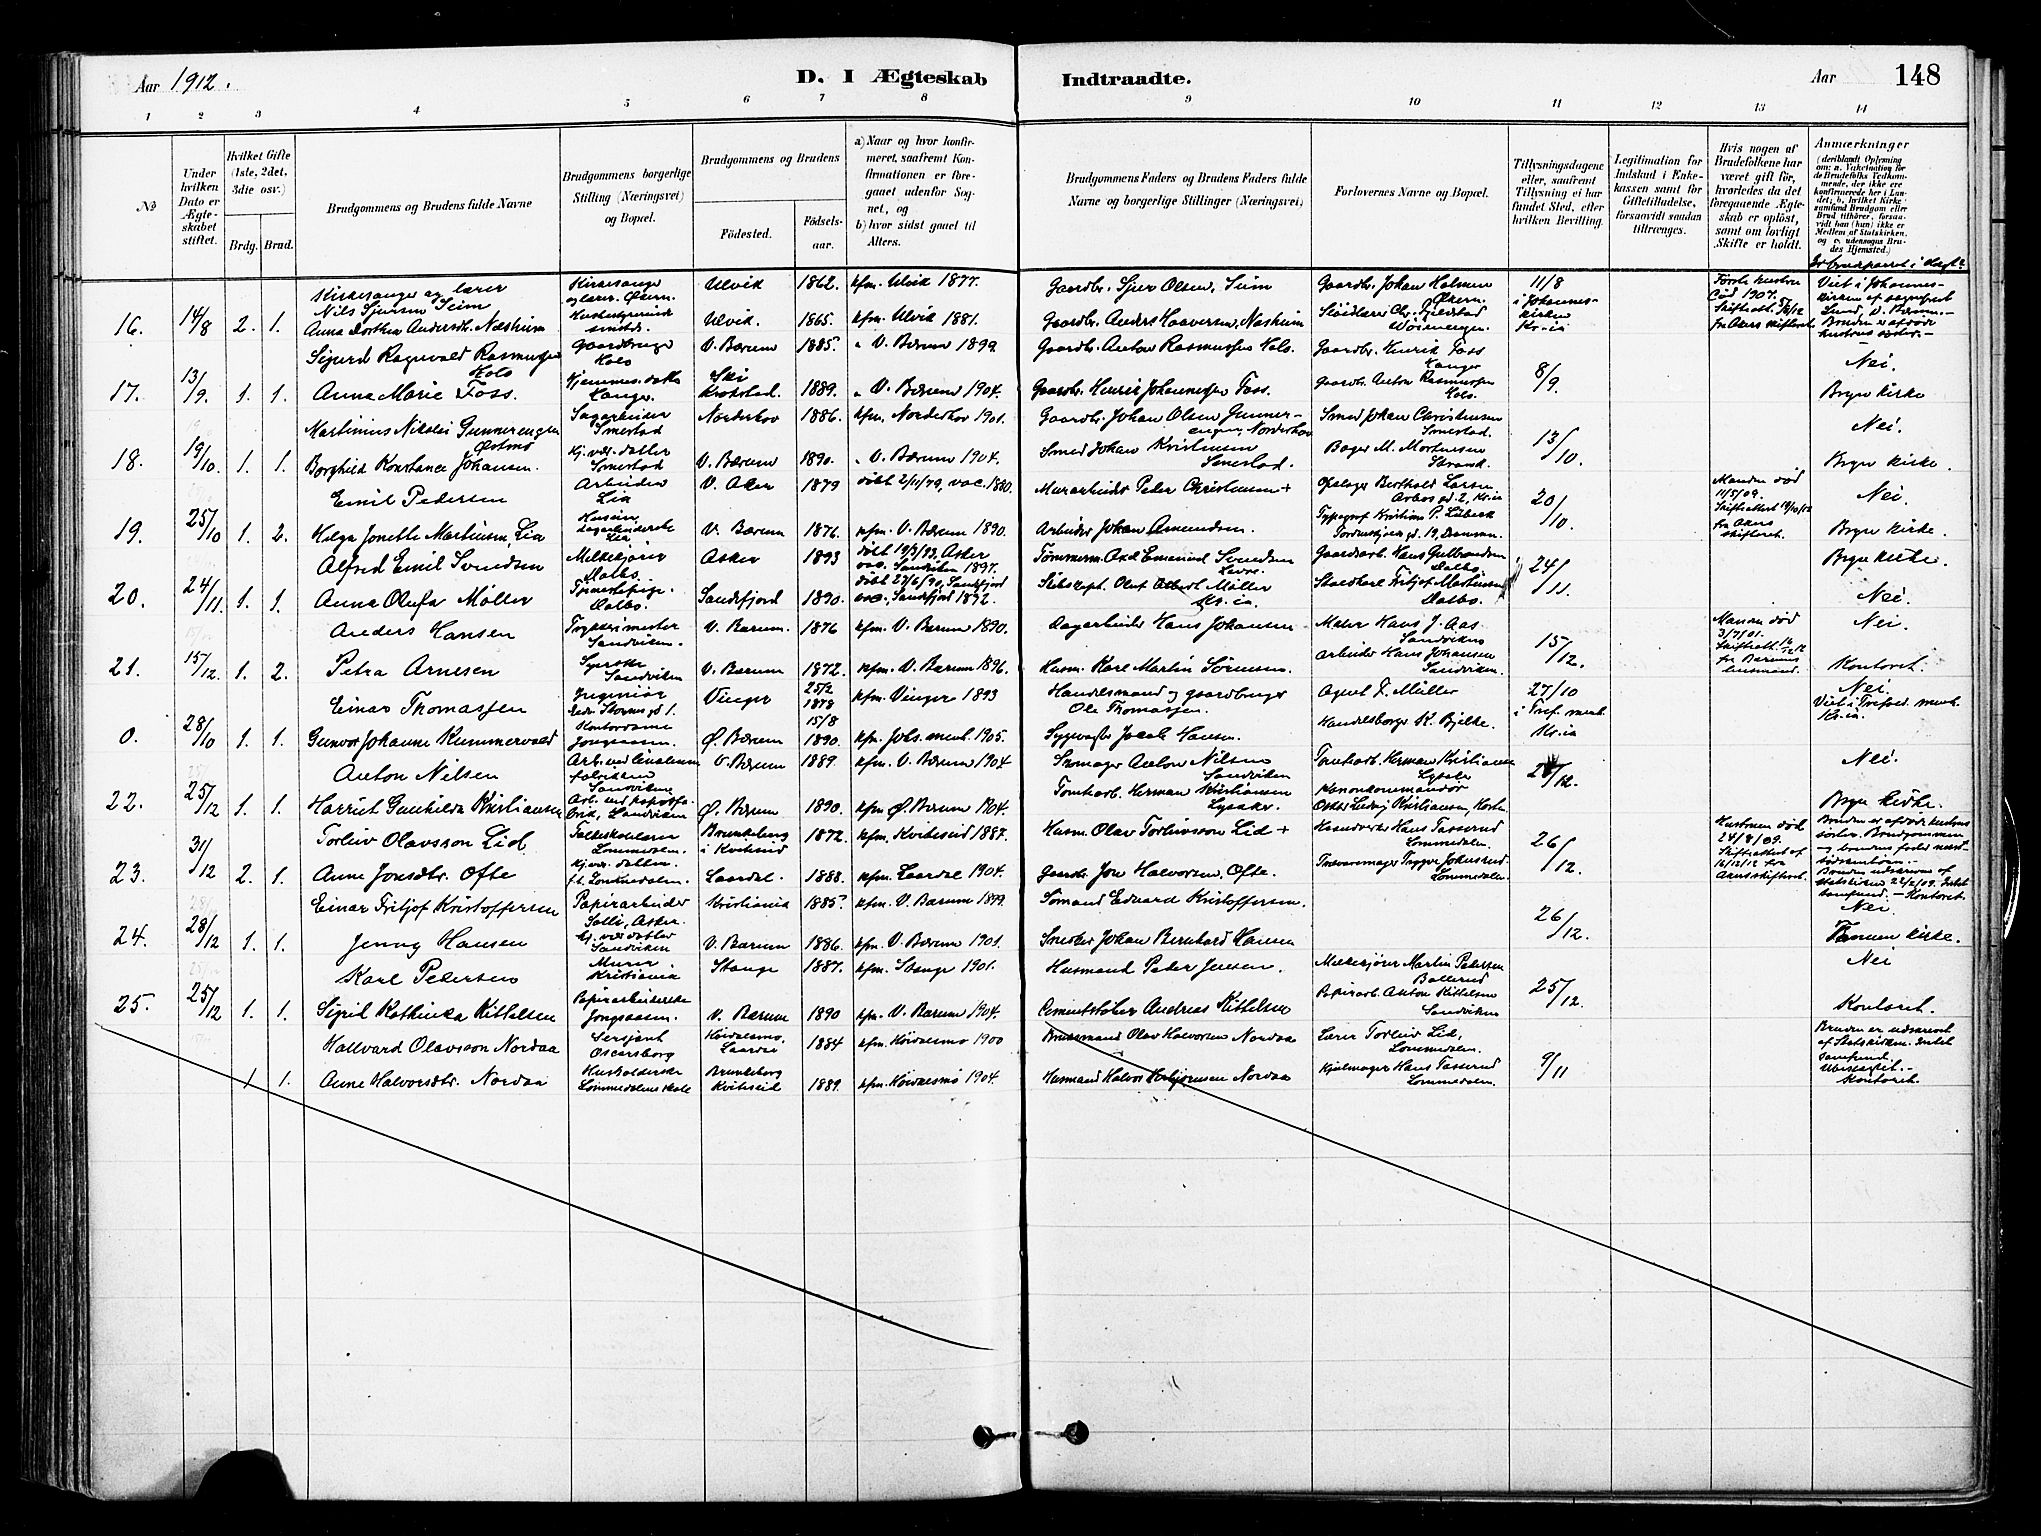 Aar 1912.
D. I Ægteskab Indtraadte.
Aar 148
1 2 3 4 5 6 7 8 9 10 11 12 13 14
№
Under hvilken Dato er Ægteskabet stiftet.
Hvilket Gifte (1ste, 2det, 3die osv.)
Brdg. Brud.
Brudgommens og Brudens fulde Navne
Brudgommens borgerlige Stilling (Næringsvei) og Bopæl.
Brudgommens og Brudens
Fødested.
Fødsels-aar.
a) Naar og hvor konfirmeret, saafremt Konfirmationen er foregaaet udenfor Sognet, og
b) hvor sidst gaaet til Alters.
Brudgommens Faders og Brudens Faders fulde Navne og borgerlige Stillinger (Næringsvei)
Forlovernes Navne og Bopæl.
Tillysningsdagene eller, saafremt Tillysning ei har fundet Sted, efter hvilken Bevilling.
Legitimation for Indskud i Enkekassen samt for Giftetilladelse, forsaavidt saadan tiltrænges.
Hvis nogen af Brudefolkene har været gift før, hvorledes da det foregaaende Ægteskab er opløst, samt om lovligt Skifte er holdt.
Anmærkninger
(deriblandt Oplysning om: a. Vakcination for de Brudefolks Vedkommende, der ikke ere konfirmerede her i Landet; b. hvilket Kirkesamfund Brudgom eller Brud tilhører, forsaavidt han (hun) ikke er Medlem af Statskirken, og c. udensogns Brudes Hjemsted.)
16. 14/8 2. 1. Kirkesanger og lærer Nils Sjursen Seim Kirkesanger og lærer. Økern. Ulvik 1862. kfm. Ulvik 1877. Gaardbr. Sjur Olsen, Seim Gaardbr. Johan Holmen Økern. 11/8 i Johanneskirken Kr.ia Første hustru død 1907. fra Akers skifteret. Viet i Johanneskirken af sogneprest Lund, V. Bærum.
Anna Dorthea Andersdt. Næsheim Ulvik. 1865. kfm. Ulvik 1881. Gaardbr. Anders Haaversen, Næsheim Bruden er afdøde hustrus søster.
17. 13/9. 1. 1. Sigurd Ragnvald Rasmussen Kolo Gaardbruger Kolo V. Bærum 1885. " V. Bærum 1899. Gaardbr. Anton Rasmussen Kolo. Gaardbr. Henrik Foss 8/9 Nei.
Anna Marie Foss. Hjemmev. datter Ski Krokstad. 1889. " V. Bærum 1904. Gaardbr. Henrik Johannessen Foss. Gaardbr. Anton Rasmussen Kolo. Bryn kirke
18. 19/10. 1. 1. Martinius Nikolai Gunnerengen Østmo Sagarbeider Smestad Norderhov 1886. kfm. Norderhov 1901. Gaardbr. Johan Olsen Gunnerengen, Norderhov Smed Johan Christensen Smestad. 13/10. Nei.
Borghild Konstance Johansen. Hj. vær. datter Smestad V. Bærum 1890. " V. Bærum 1904. Smed Johan Kristensen Smestad. Bager M. Mortensen Strand. Bryn kirke.
19. 25/10 1. 2. Emil Pedersen Arbeider Lia V. Aker 1879 døbt 2/11/79, vac. 1880. Murarbeider Peder Christensen + Oplager Berthold Larsen 20/10. Manden død 11/5/09. Skifteattest 19/10/12 fra Akers skifteret. Nei.
Helga Jonette Martinsen, Lia Lia V. Bærum 1876. kfm. V. Bærum 1890. Arbeider Johan Amundsen. Typograf Kristian P. Lübeck Bryn kirke.
20. 24/11. 1. 1. Alfred Emil Svendsen Melkekjører Dalbo. Asker 1893 døbt 19/3/93, Asker vac. Sandviken 1897. Tømmerm. Axel Emanuel Svendsen Gaardsarb. Hans Gulbrandsen Dalbo 24/11. Bryn kirke.
Anna Olufa Møller Tjenestepige. Dalbo. Sandefjord 1890. døbt 27/6/90, Sandefjord vac., Sandefjord 1892. Skibskapt. Oluf Albert Møller Kr.ia. Staldkarl Fritjof Martinsen Dalbo. Nei.
21. 15/12. 1. 2. Anders Hansen Trykkerimester Sandviken. V. Bærum. 1876 kfm. V. Bærum 1890. Dagarbeider Hans Johansen Maler Hans J. Aas Sandviken 15/12. Manden død 3/7/01. fra Bærums lensmand. Nei.
Petra Arnesen Syerske Sandviken V. Bærum 1872. kfm. V. Bærum 1896. Husm. Karl Martin Sørensen. Arbeider Hans Johansen Sandviken. Kontoret.
0. 28/10 1. 1. Einar Thomassen Ingeniør Vinger 25/2 1878 kfm. Vinger 1893 Handelsmand og gaardbruger Ole Thomassen. Agent F. Müller 27/10 i Tref. menh. Kr.ia Nei. Viet i Trefold. menh. Kr.ia.
Gunvor Johanne Kummervold Kontordame Jongsaasen. Ø. Bærum 15/8 1890. kfm. Johs. menh. 1905. Sygevogter Jacob Hansen. Handelsborger K. Bjelke.
22. 25/12 1. 1. Anton Nilsen Sandviken V. Bærum 1889. kfm. V. Bærum 1904 Skomager Anton Nilsen Sandviken Tomtearb. Herman Kristiansen Lysaker 25/12. Nei.
Harriet Gunhilda Kristiansen Sandviken Ø. Bærum 1890. kfm. Ø. Bærum 1904. Tomtearb. Herman Kristiansen Lysaker. Kanonkommandør Oskar Ludvig Kristiansen, Horten Bryn kirke.
23. 31/12 2. 1. Torleiv Olavsson Lid Folkeskolelærer Lommedalen. Brunkeberg i Kviteseid 1872. kfm. Kviteseid 1887. Husm. Olav Torleivsson Lid + Hans Tasserud Lommedalen. 26/12. Hustruen død 24/8/09. Skifteattest af 16/12/12 fra Akers skifteret. Bruden er afdøde hustrus søster.
Anne Jonsdtr. Ofte Hj. vær. datter Lommedalen. Laardal. 1888. kfm. Laardal 1904. Gaardbr. Jon Halvorsen, Ofte. Lommedalen. Kontoret.
24. 28/12. 1. 1. Einar Fritjof Kristoffersen Papirarbeider Solli, Asker. Kristiania 1885. kfm. V. Bærum 1899. Sømand Edvard Kristoffersen. 26/12. Nei
Jenny Hansen Hj. vær datter Sandviken V. Bærum 1886. kfm. V. Bærum 1901. Snedker Johan Bernhard Hansen Tanum kirke.
25. 25/12 1. 1. Karl Pedersen Murer Kristiania Stange 1887. kfm. Stange 1901. Husmand Peder Jensen. Melkekjører Martin Pedersen Ballerud 25/12. Nei
Sigrid Kathinka Kittelsen Papirarbeiderske Jongsaasen. V. Bærum 1890 kfm. V. Bærum 1904. Cementstøber Andreas Kittelsen Papirarb. Anton Kittelsen Sandviken Kontoret.
1 1. Hallvard Olavsson Nordaa Serjant Oscarsborg Høidalsmo, Laardal 1884 kfm. Høidalsmo 1900 Brugsmand Olav Halvorsen Nordaa Lærer Torleiv Lid, Lommedalen. 9/11 Bruden er udskrevet af Statskirken. Intet samfund.
Anne Halvorsdtr. Nordaa Husholderske Lommedalens skole Brunkeberg Kviteseid 1889. kfm. Høidalsmo 1904. Husmand Halvor Herbjørnsen Nordaa Hjulmager Hans Tasserud Lommedalen. Kontoret.